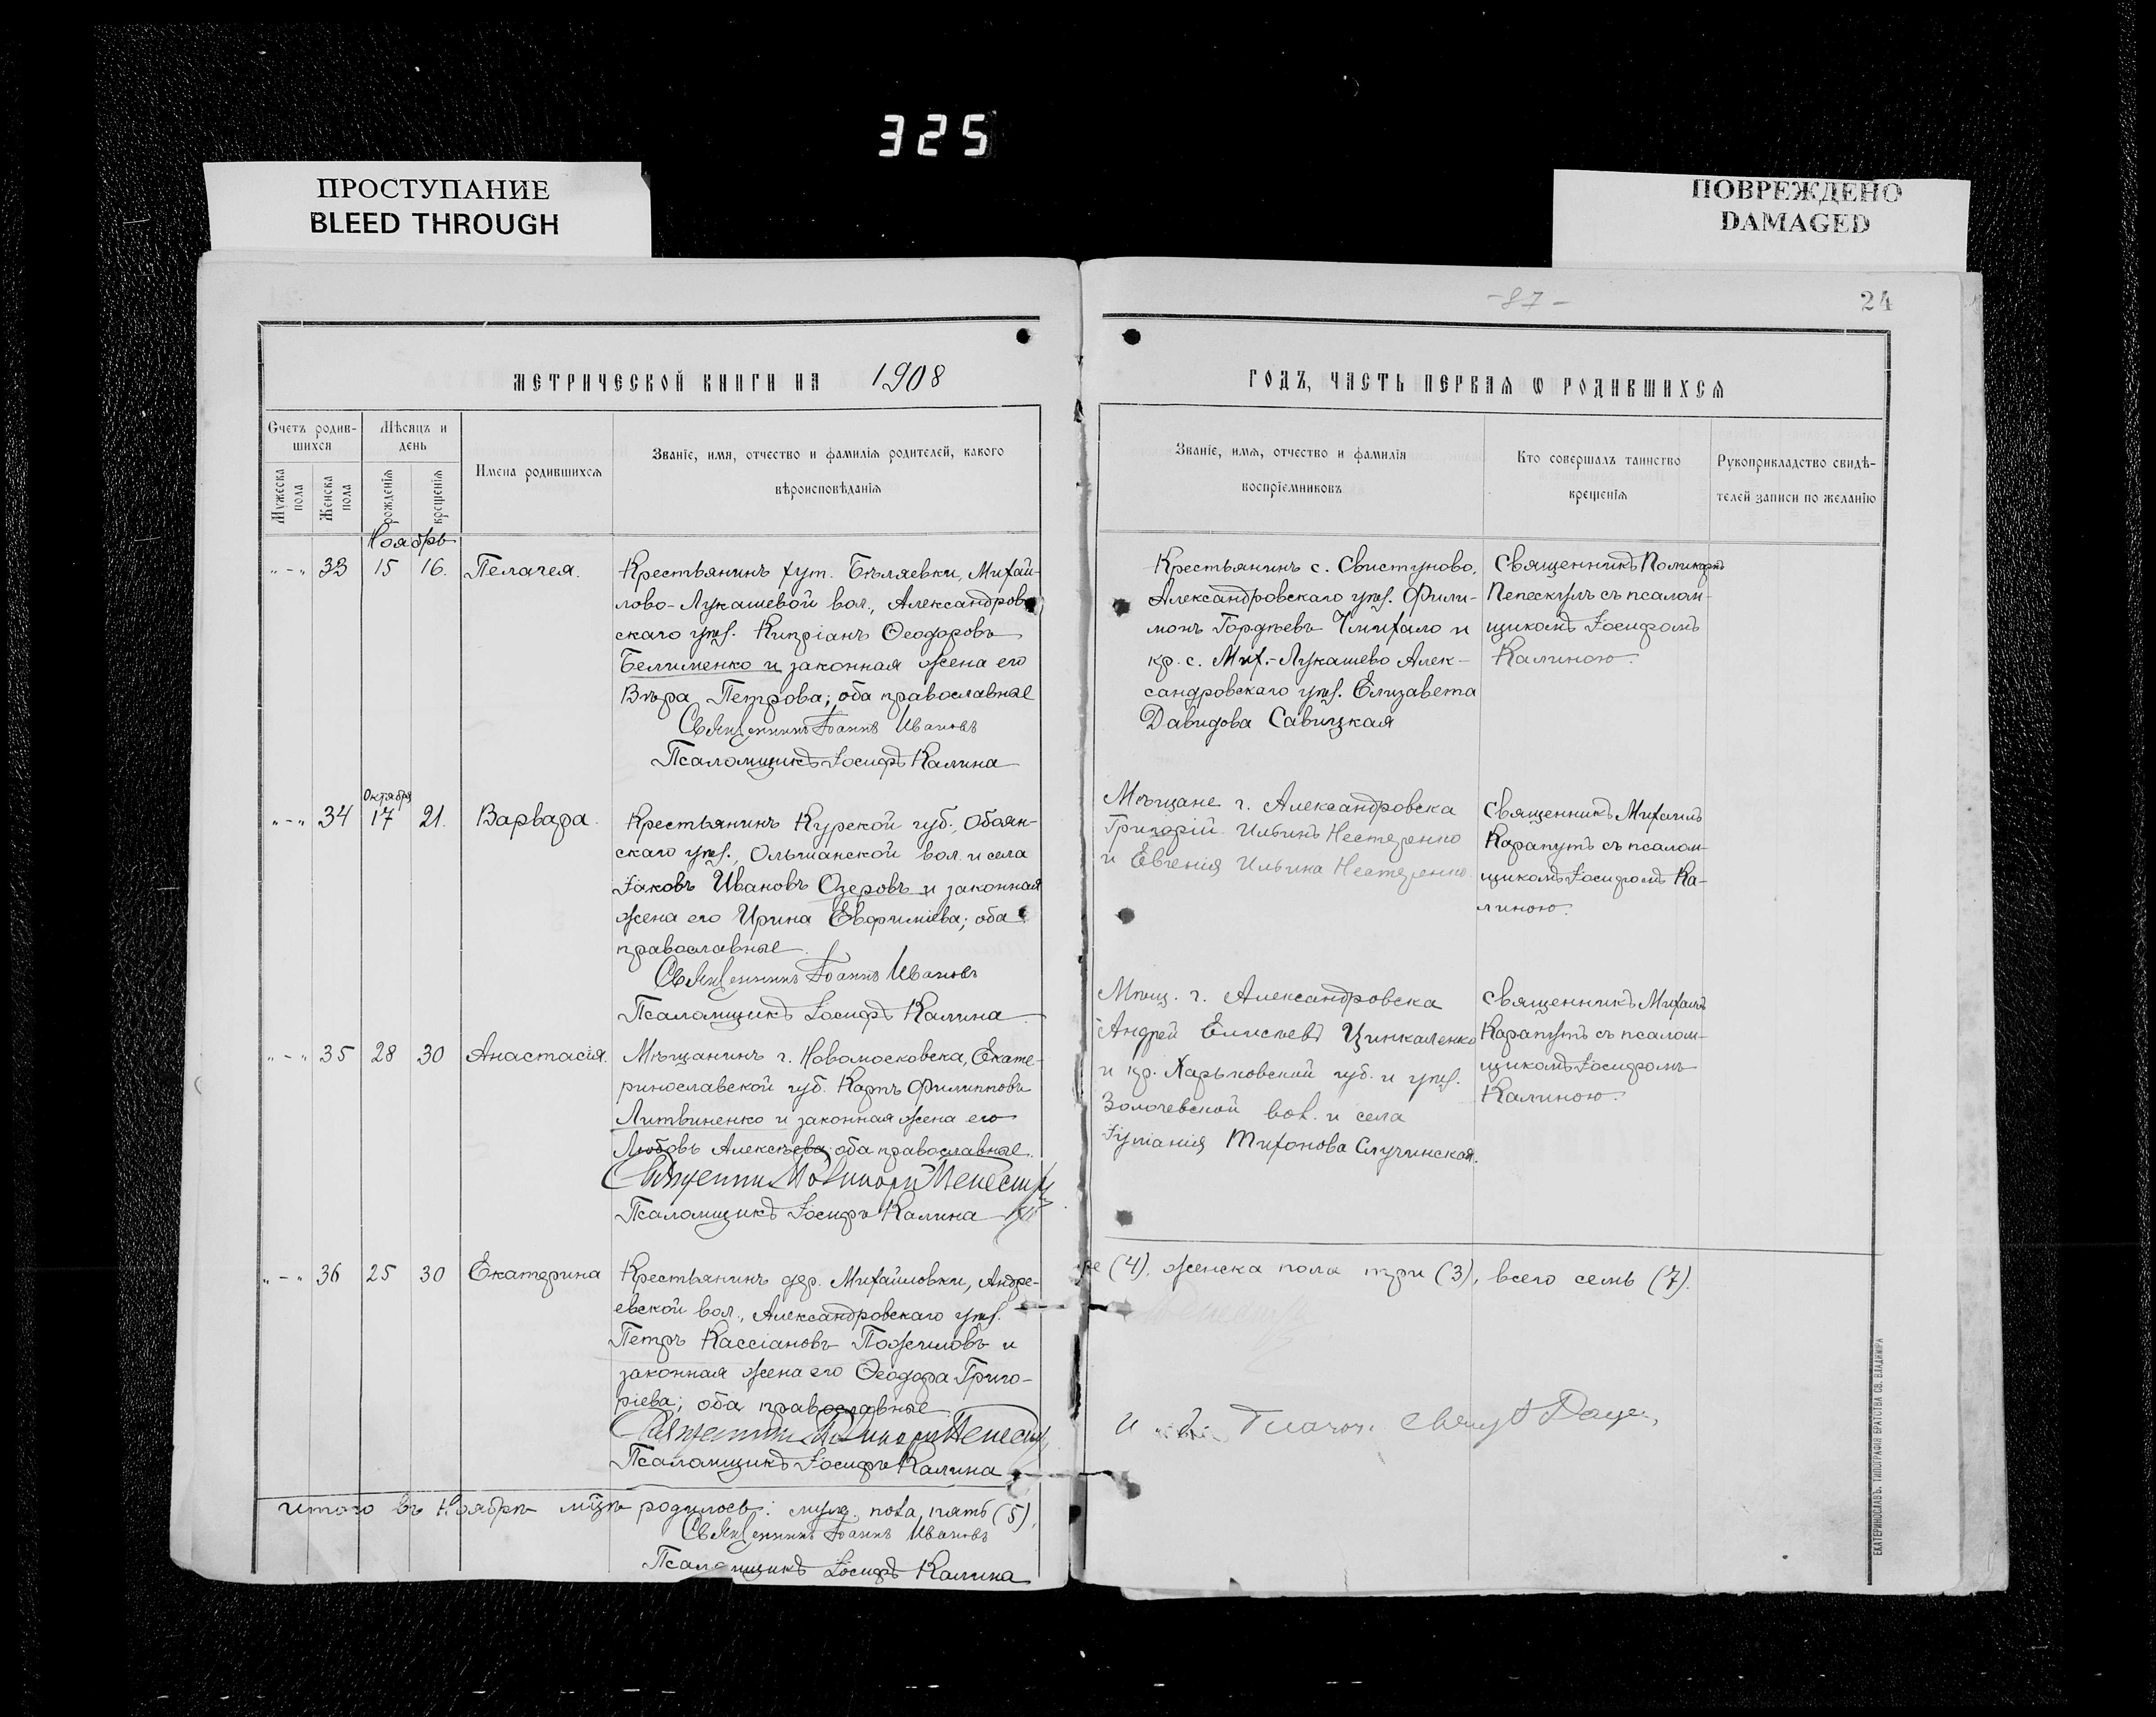 325
ПРОСТУПАНИЕ
BLEED THROUGH
ПОВРЕЖДЕНО
DAMAGED
-87-
24
МЕТРИЧЕСКОЙ КНИГИ НА 1908
Счетъ родив-
шихся
Мѣсяцъ и
день
Мужеска
пола
Женска
пола
рожденія
крещенія
Имена родившихся
Званіе, имя, отчество и фамилія родителей, какого
вѣроисповѣданія
Ноябрь
"-" 33 15 16. Пелагея.
Крестьянинъ хут. Бѣляевки, Михай-
лово-Лукашевой вол., Александров-
скаго уѣз. Кипріанъ Ѳеодоровъ
Белименко и законная жена его
Вѣра Петрова; оба православные
Священникъ Іоаннъ Ивановъ
Псаломщикъ Іосифъ Калина
Октября
"-" 34 17 21. Варвара.
Крестьянинъ Курской губ., Обоян-
скаго уѣз., Ольшанской вол. и села
Іаковъ Ивановъ Озеровъ и законная
жена его Ирина Евфиміева; оба
православные.
Священникъ Іоаннъ Ивановъ
Псаломщикъ Іосифъ Калина
"-" 35 28 30 Анастасія.
Мѣщанинъ г. Новомосковска, Екате-
ринославской губ. Карпъ Филипповъ
Литвиненко и законная жена его
Любовь Алексѣева; оба православные.
Псаломщикъ Іосифъ Калина
"-" 36 25 30 Екатерина
Крестьянинъ дер. Михайловки, Андре-
евской вол., Александровскаго уѣз.
Петръ Кассіановъ Пожиловъ и
законная жена его Ѳеодора Григо-
ріева; оба православные
Псаломщикъ Іосифъ Калина
Итого въ Ноябрѣ мѣцѣ родилось: муж. пола пять (5),
Священникъ Іоаннъ Ивановъ
Псаломщикъ Іосифъ Калина
ГОДЪ, ЧАСТЬ ПЕРВАЯ Ѡ РОДИВШИХСЯ
Званіе, имя, отчество и фамилія
воспріемниковъ
Кто совершалъ таинство
крещенія
Рукоприкладство свидѣ-
телей записи по желанію
Крестьянинъ с. Свистуново,
Александровскаго уѣз. Фили-
монъ Гордѣевъ и
кр. с. Мих.-Лукашево Алек-
сандровскаго уѣз. Елизавета
Давидова Савицкая
Священникъ Поликарпъ
Пепескулъ съ псалом-
щикомъ Іосифомъ
Калиною.
Мѣщане г. Александровска
Григорій Ильинъ Нестеренко
и Евгенія Ильина Нестеренко.
Священникъ Михаилъ
Карапутъ съ псалом-
щикомъ Іосифомъ Ка-
линою.
Мѣщ. г. Александровска
Андрей Елисѣевъ Цинкаленко
и кр. Харьковской губ. и уѣз.
Золочевской вол. и села
Іуліанія Тихонова Случинская.
Священникъ Михаилъ
Карапутъ съ псалом-
щикомъ Іосифомъ
Калиною.
ре (4), женска пола три (3), всего семь (7).
ЕКАТЕРИНОСЛАВЪ. ТИПОГРАФІЯ БРАТСТВА СВ. ВЛАДИМІРА